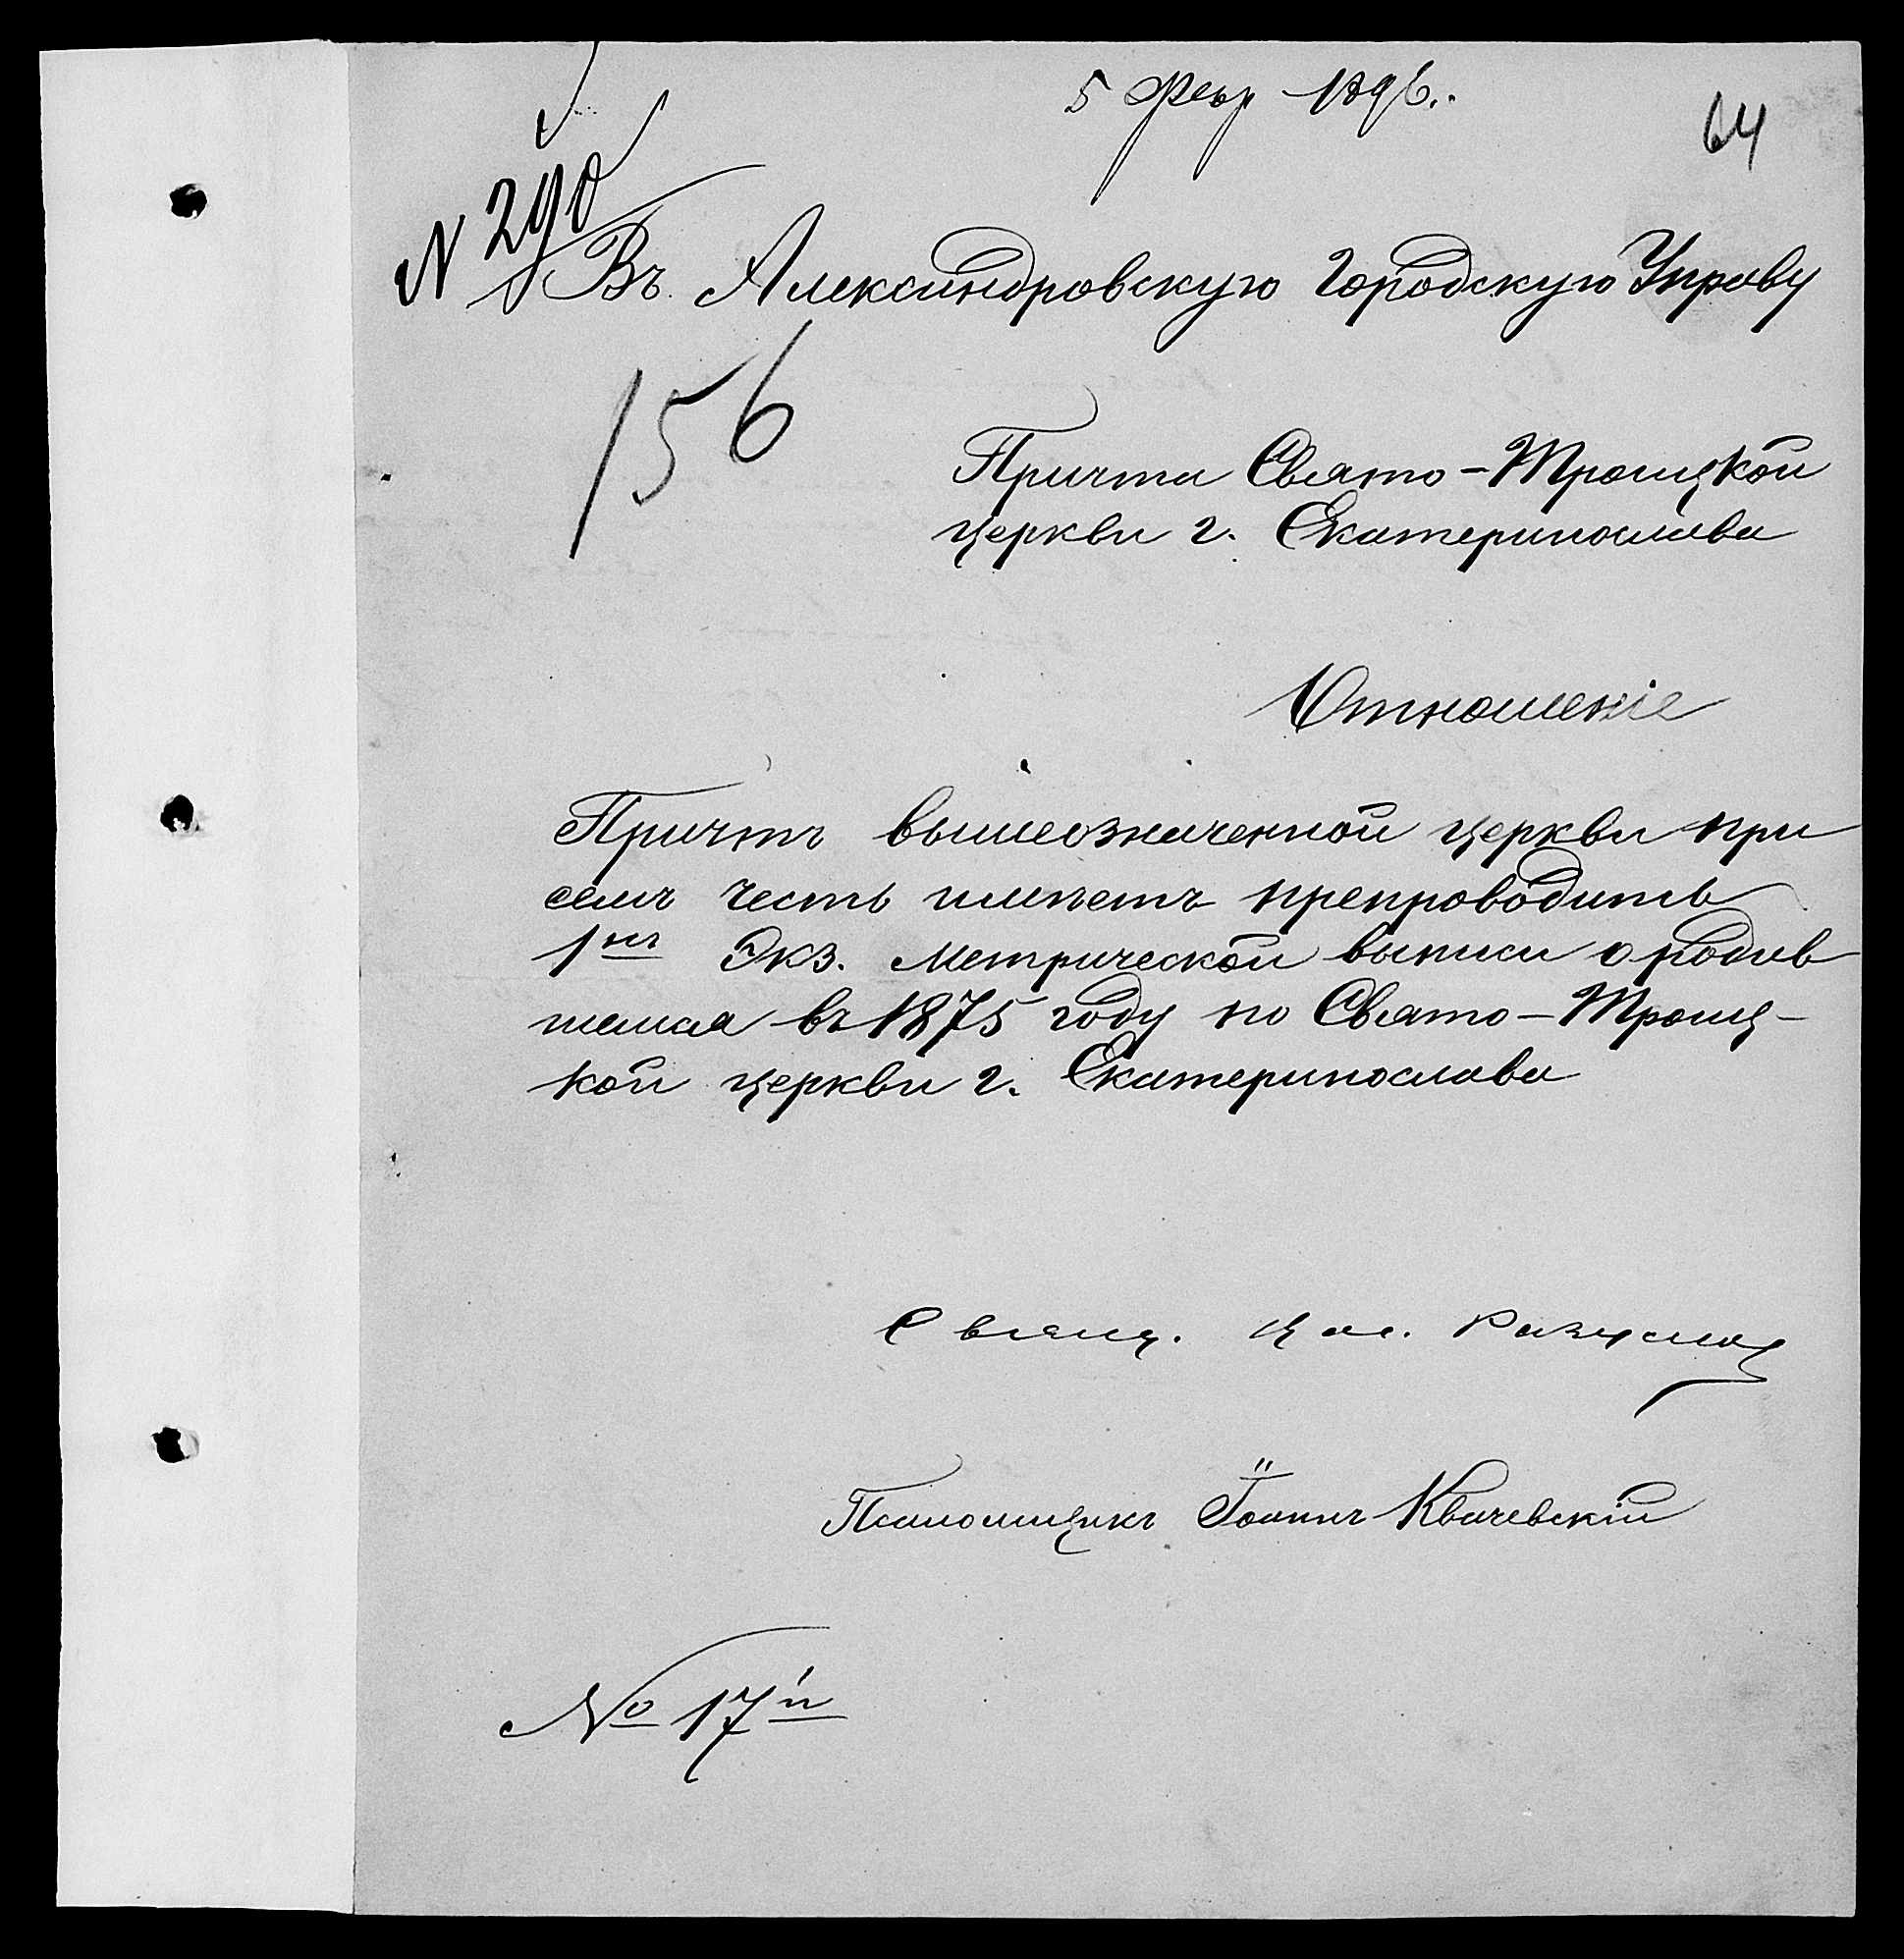 5 Февр 1896.
64
N 290
Въ Александровскую Городскую Управу
156
Причта Свято-Троицкой
церкви г. Екатеринослава
Отношеніе
Причтъ вышеозначенной церкви при
семъ честь имѣетъ препроводить
1нъ Экз. метрической выписи о родив
шемся въ 1875 году по Свято-Троиц-
кой церкви г. Екатеринослава
Свящ. Разумов
Псаломщикъ Іоаннъ Квачевскій
№ 17й